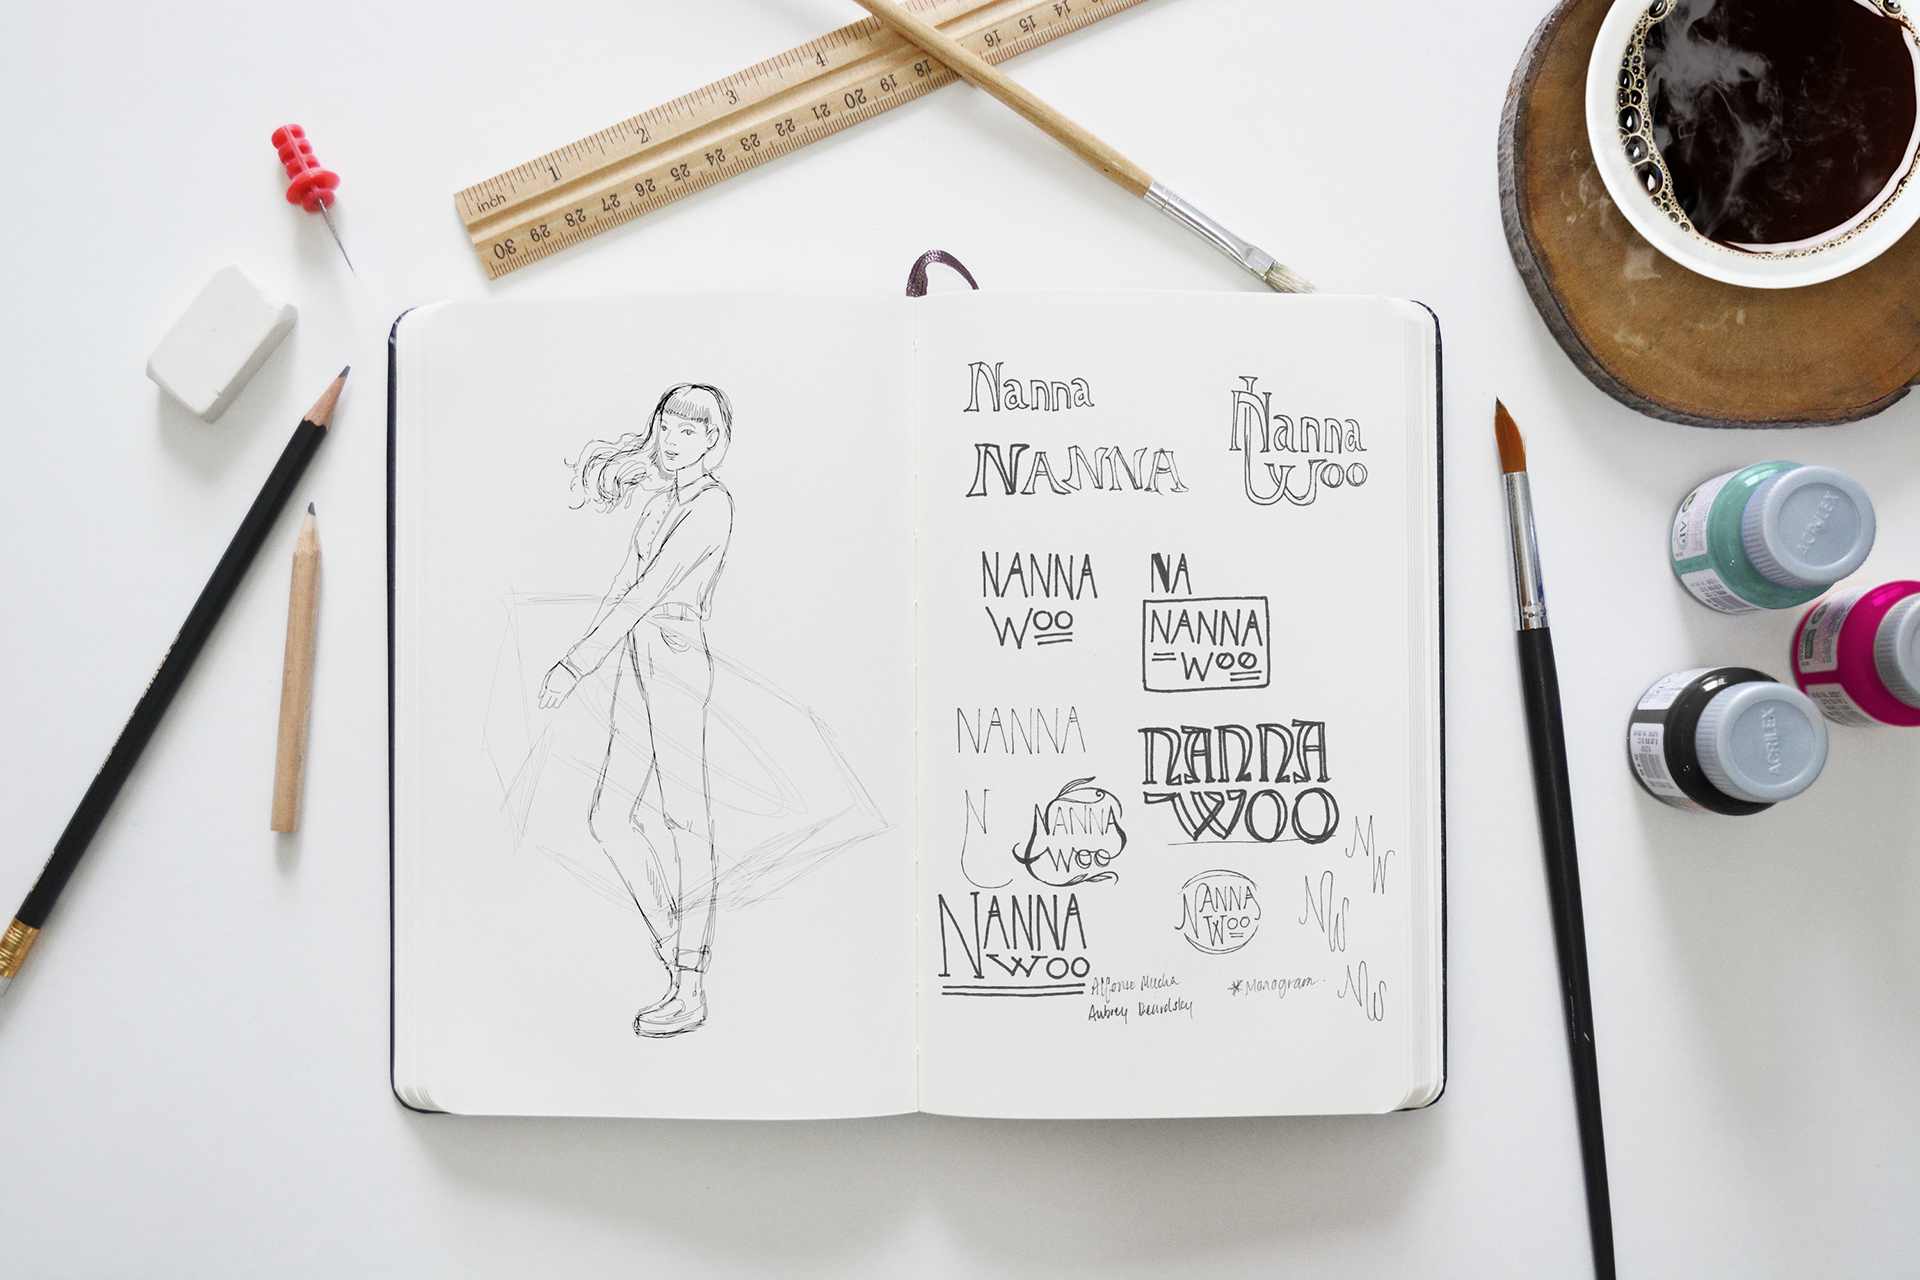 inch 1 2 3 4
30 29 28 27 26 25 24 23 22 21 20 19 18 16 15 14
Nanna
NANNA
Nanna
Woo
NANNA
Woo
NA
NANNA
Woo
NANNA
NANNA
WOO
N
NANNA
Woo
NANNA
WOO
NANNA
Woo
NW
NW
NW
Alfonse Mucha
Aubrey Beardsley
*Monogram.
ACRILEX
ACRILEX